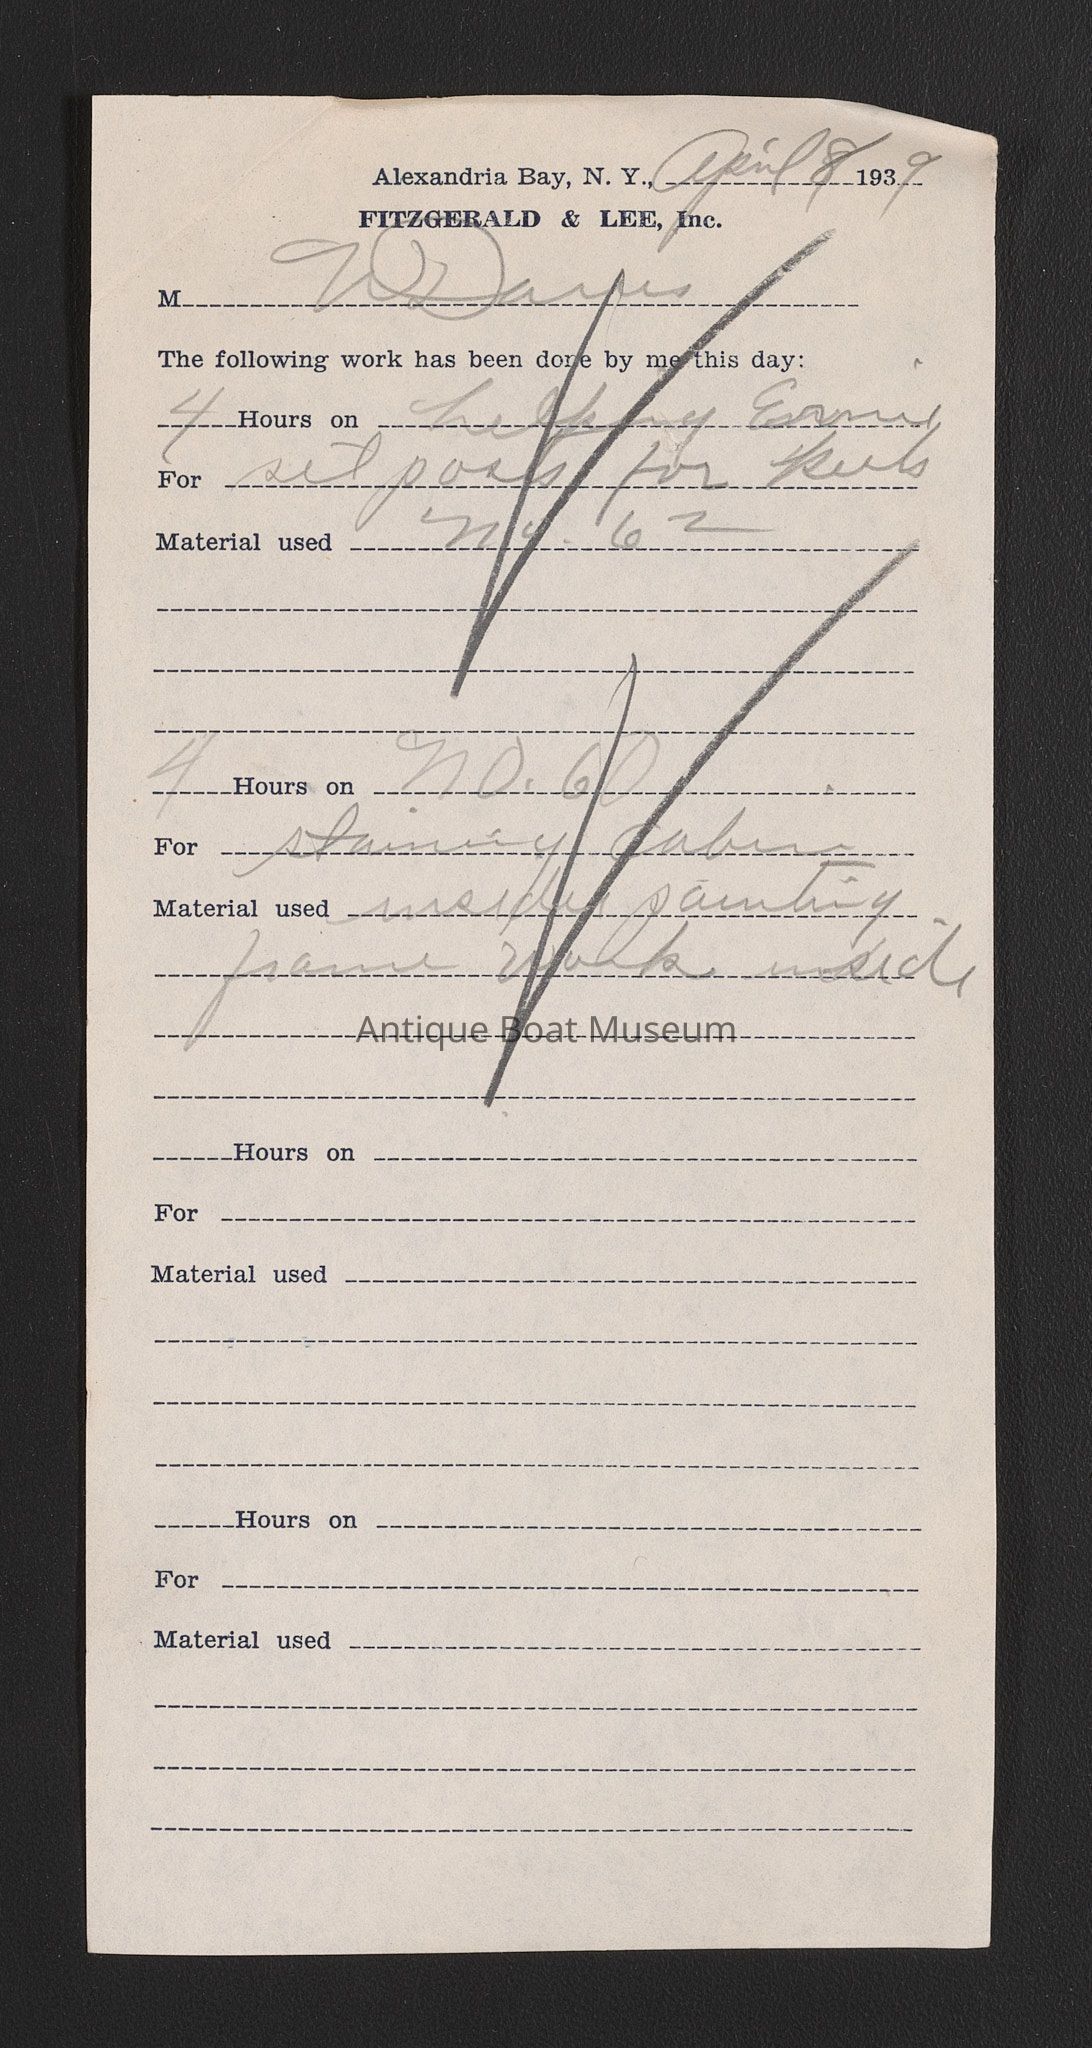 Alexandria Bay, N. Y., April 8 1939
FITZGERALD & LEE, Inc.
M W Davis
The following work has been done by me this day:
4 Hours on helping Ernie
For set posts for keels
Material used No. 62
4 Hours on No. 60
For staining cabin
Material used inside painting
frame work inside
Antique Boat Museum
Hours on
For
Material used
Hours on
For
Material used